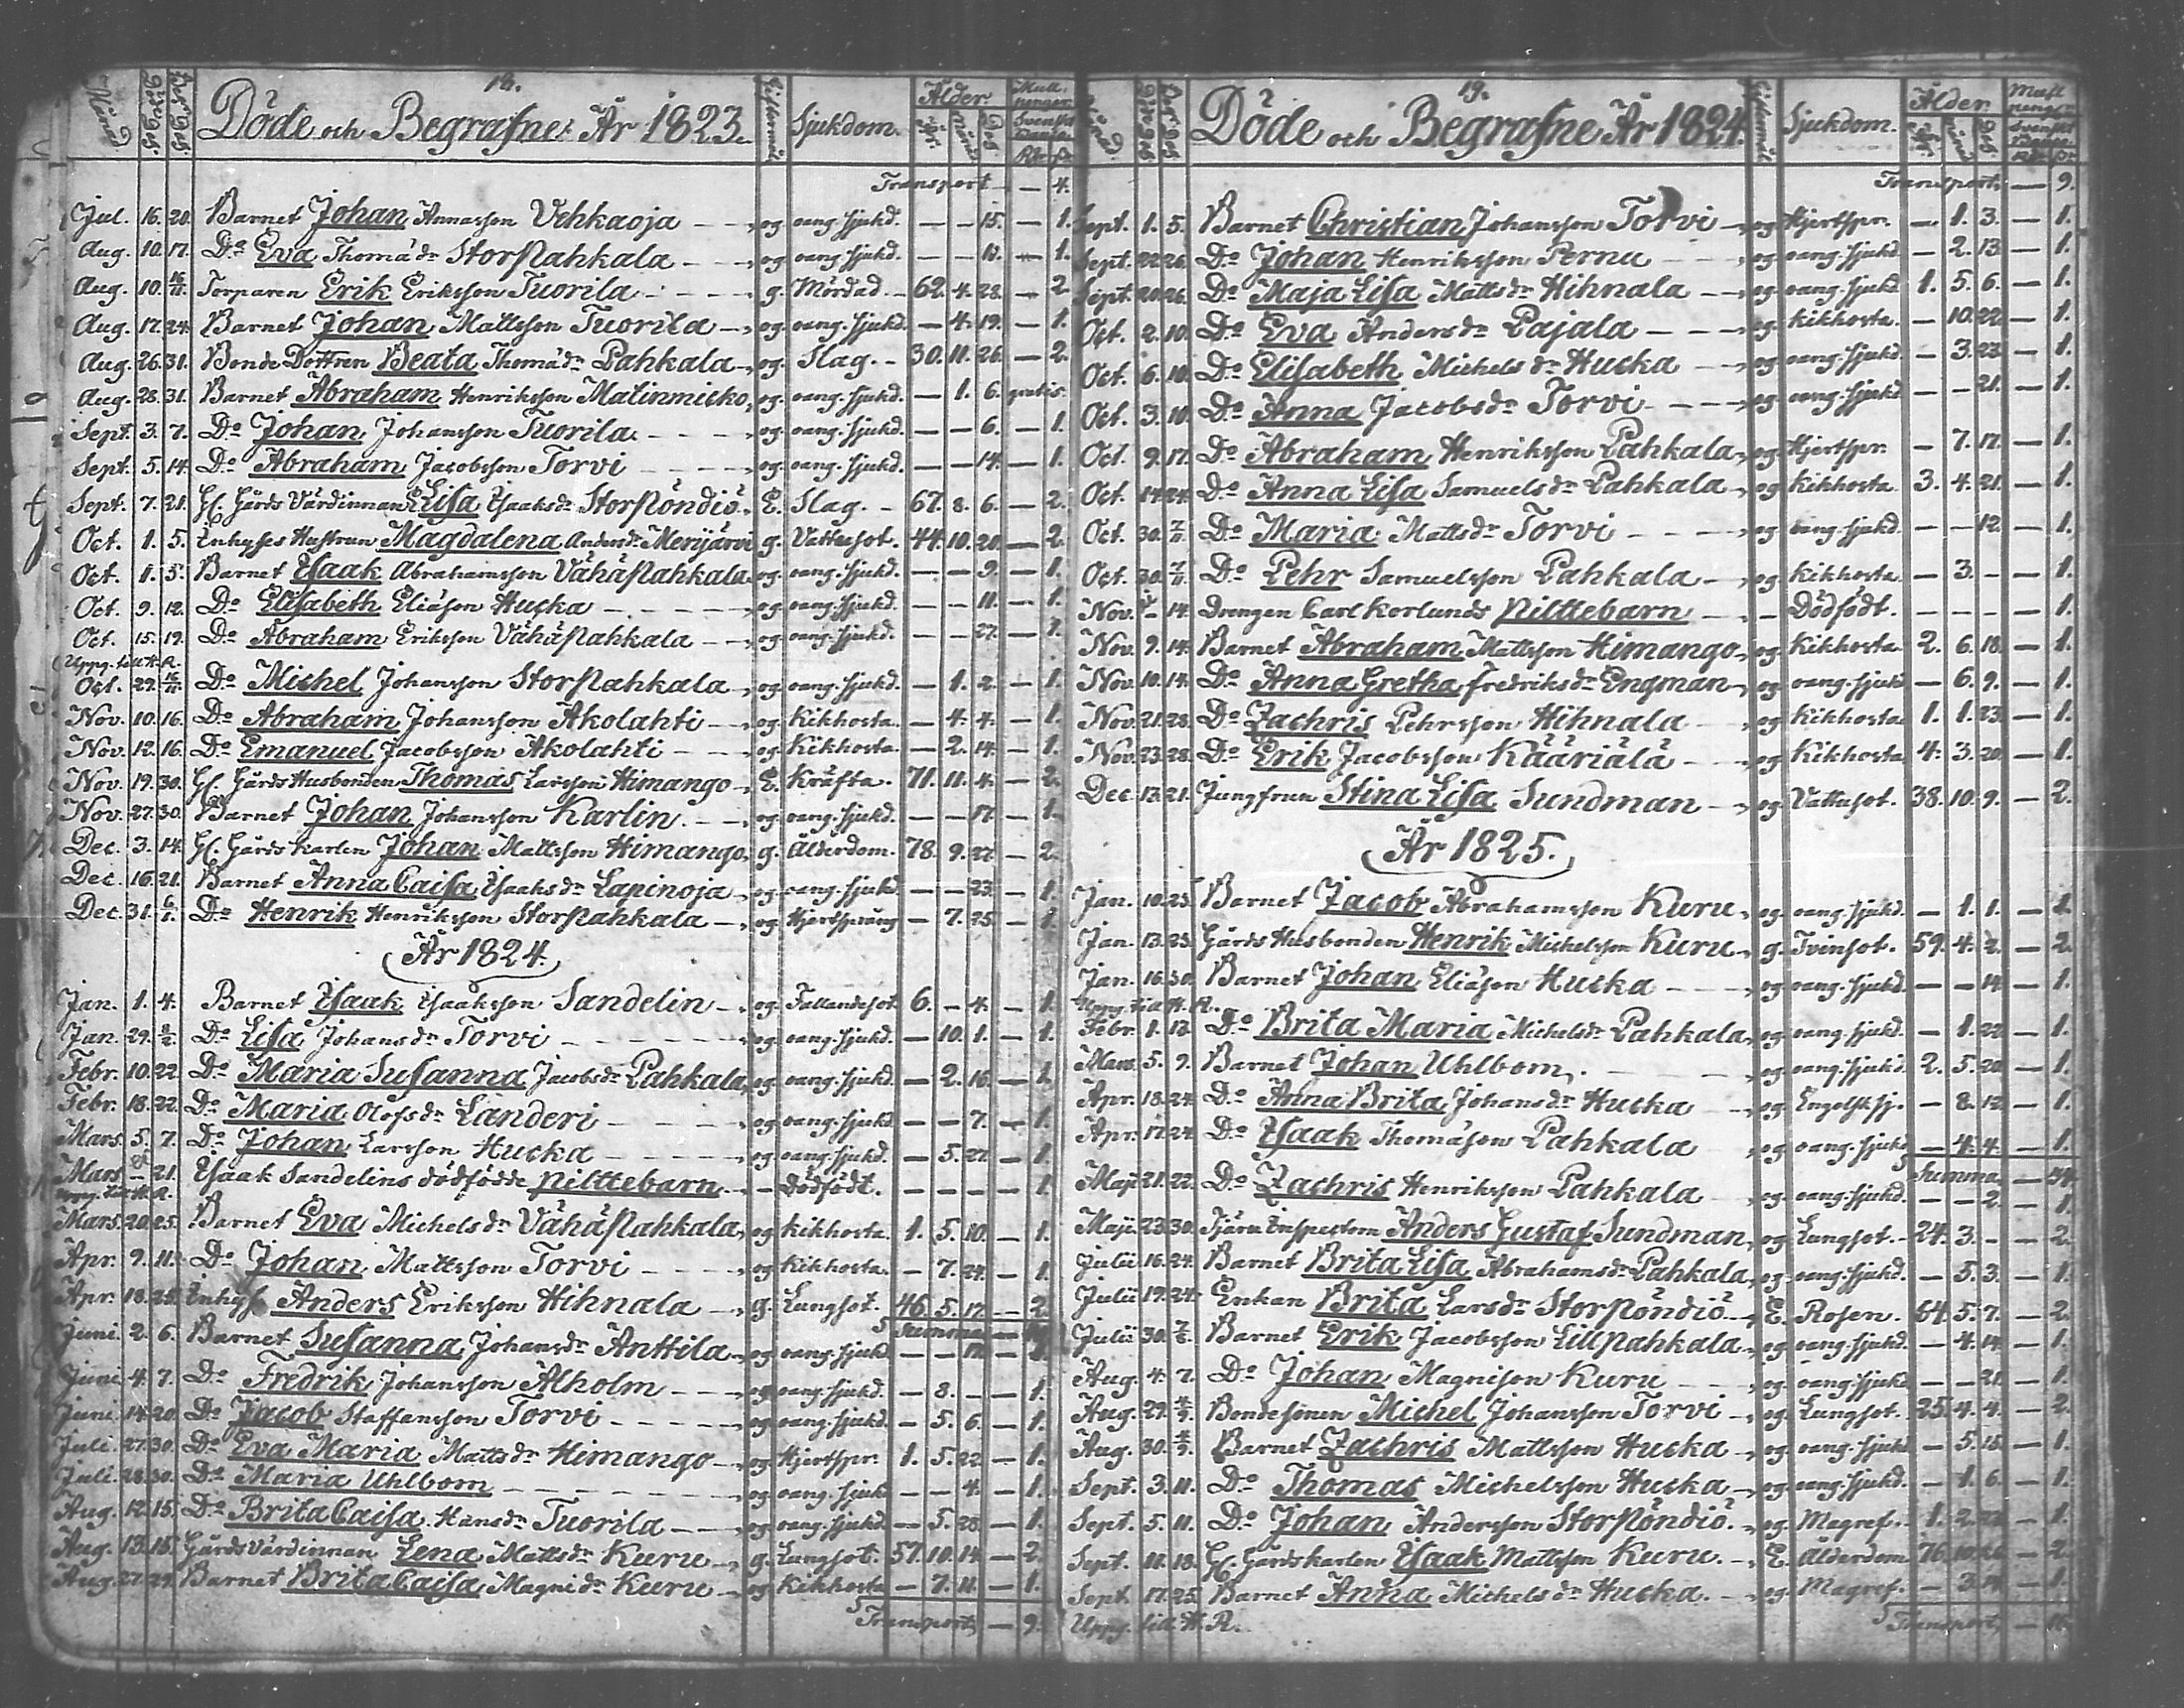 18.
Månad. Död. dag. Begr. dag. Döde och Begrafne: År 1823. Sjukdom. Ålder. år. Mån. dag. Mull-
Transport — 4.
Jul. 16. 20. Barnet Johan Annasson Vehkaoja og. oang. sjukd. — — 15. — 1.
Aug. 10. 17. Do Eva Thomædr StorPahkala og. oang. sjukd. — — 1.
Aug. 10. Torparen Erik Eriksson Tuorila g. Mördad. 62. 4. 28. — 2.
Aug. 17. 24. Barnet Johan Mattsson Tuorila og. oang. sjukd. — 4. 19. — 1.
Aug. 26. 31. Bonde Dottren Beata Thomædr Pahkala og. Slag. 30. 11. 26. — 2.
Aug. 28. 31. Barnet Abraham Henriksson Matinmicko og. oang. sjukd. — 1. 6. gratis.
Sept. 3. 7. Do Johan Johansson Tuorila og. oang. sjukd. — — 6. — 1.
Sept. 5. 14. Do Abraham Jacobsson Torvi og. oang. sjukd. — — 14. — 1.
Sept. 7. 21. Gl. Gårds Värdinnan Lisa Esaaksdr StorPöndiö E. Slag. 67. 8. 6. — 2.
Oct. 1. 5. Inhyses Hustrun Magdalena Andersdr Merijärvi g. Vattusot. 44. 10. 20. — 2.
Oct. 1. 5. Barnet Esaak Abrahamsson VähäPahkala og. oang. sjukd. — — 9. — 1.
Oct. 9. 12. Do Elisabeth Eliæson Hucka og. oang. sjukd. — — 11. — 1.
Oct. 15. 19. Do Abraham Eriksson VähäPahkala og. oang. sjukd. — — 27. — 1.
Uppg. till K. R.
Oct. 29. 16/11. Do Michel Johansson StorPahkala og. oang. sjukd. — 1. 2. — 1.
Nov. 10. 16. Do Abraham Johansson Åkolahti og. Kikhosta. — 4. 4. — 1.
Nov. 12. 16. Do Emanuel Jacobsson Åkolahti og. Kikhosta. — 2. 14. — 1.
Nov. 19. 30. Gl. Gårds Husbonden Thomas Larsson Himango E. Kräfta. 71. 11. 4. — 2.
Nov. 27. 30. Barnet Johan Johansson Karlin og. oang. sjukd. — — 17. — 1.
Dec. 3. 14. Gl. Gårds Karlen Johan Mattsson Himango g. Ålderdom. 78. 9. 22. — 2.
Dec. 16. 21. Barnet Anna Caisa Esaaksdr Lapinoja og. oang. sjukd. — — 23. — 1.
Dec. 31. 6/1. Do Henrik Henriksson StorPahkala og. Hjertsprång — 7. 25. — 1.
År 1824.
Jan. 1. 4. Barnet Esaak Esaaksson Sandelin og. Fallandesot. 6. — 4. — 1.
Jan. 29. 8/2. Do Lisa Johansdr Torvi og. oang. sjukd. — 10. 1. — 1.
Febr. 10. 22. Do Maria Susanna Jacobsdr Pahkala og. oang. sjukd. — 2. 16. — 1.
Febr. 18. 22. Do Maria Olofsdr Länderi og. oang. sjukd. — — 7. — 1.
Mars. 5. 7. Do Johan Larsson Hucka og. oang. sjukd. — 5. 22. — 1.
Mars — 21. Esaak Sandelins dödfödde Pilttebarn — Dödfödt. — — — — 1.
Uppg. till K. R.
Mars. 20. 25. Barnet Eva Michelsdr VähäPahkala og. Kikhosta. 1. 5. 10. — 1.
Apr. 9. 11. Do Johan Mattsson Torvi og. Kikhosta. — 7. 24. — 1.
Apr. 18. 25. Inhys. Anders Eriksson Hihnala g. Lungsot. 46. 5. 17. — 2.
Summa
Juni. 2. 6. Barnet Susanna Johansdr Anttila og. oang. sjukd. — —
Juni. 4. 7. Do Fredrik Johansson Alholm og. oang. sjukd. — 8. — — 1.
Juni. 14. 20. Do Jacob Staffansson Torvi og. oang. sjukd. — 5. 6. — 1.
Juli. 27. 30. Do Eva Maria Mattsdr Himango og. Hjertspr. 1. 5. 22. — 1.
Juli. 28. 30. Do Maria Uhlbom og. oang. sjukd — — 4. — 1.
Aug. 12. 15. Do Brita Caisa Hansdr Tuorila og. oang. sjukd. — 5. 28. — 1.
Aug. 13. 15. Gårds Värdinnan Lena Mattsdr Kuru g. Lungsot. 57. 10. 14. — 2.
Aug. 27. 29. Barnet Brita Caisa Magnidr Kuru og. Kikhosta — 7. 11. — 1.
Transport — 9.
19.
Döde och Begrafne År 1824. Sjukdom. Ålder.
Transport — 9.
Sept. 1. 5. Barnet Christian Johansson Torvi og. Hjertspr. — 1. 3. — 1.
Sept. 22. 26. Do Johan Henriksson Pernu og. oang. sjukd. — 2. 13. — 1.
Sept. 20. 26. Do Maja Lisa Mattsdr Hihnala og. oang. sjukd. 1. 5. 6. — 1.
Oct. 2. 10. Do Eva Andersdr Pajala og. Kikhosta. — 10. 22. — 1.
Oct. 6. 10. Do Elisabeth Michelsdr Hucka og. oang. sjukd. — 3. 23. — 1.
Oct. 3. 10. Do Anna Jacobsdr Torvi og. oang. sjukd — — 21. — 1.
Oct. 9. 17. Do Abraham Henriksson Pahkala og. Hjertspr. — 7. 17. — 1.
Oct. 14. 24. Do Anna Lisa Samuelsdr Pahkala og. Kikhosta. 3. 4. 21. — 1.
Oct. 30. 7/11. Do Maria Mattsdr Torvi og. oang. sjukd. — — 12. — 1.
Oct. 30. 7/11. Do Pehr Samuelsson Pahkala og. Kikhosta. — 3. — — 1.
Nov. — 14. Drengen Carl Korlunds Pilttebarn — Dödfödt. — — — — 1.
Nov. 9. 14. Barnet Abraham Mattsson Himango og. Kikhosta. 2. 6. 18. — 1.
Nov. 10. 14. Do Anna Gretha Fredriksdr Engman og. oang. sjukd — 6. 9. — 1.
Nov. 21. 28. Do Zachris Pehrsson Hihnala og. Kikhosta 1. 1. 23. — 1.
Nov. 23. 28. Do Erik Jacobsson Kääriälä og. Kikhosta 4. 3. 20. — 1.
Dec. 13. 21. Jungfrun Stina Lisa Sundman og. Vattusot. 38. 10. 9. — 2.
År 1825.
Jan. 10. 23. Barnet Jacob Abrahamsson Kuru og. oang. sjukd. — 1. 1. — 1.
Jan. 13. 23. Gårds Husbonden Henrik Michelsson Kuru g. Tvinsot. 59. 4. 2. — 2.
Jan. 16. 30. Barnet Johan Eliæson Hucka og. oang. sjukd. — — 14. — 1.
Uppg. till K. R.
Febr. 1. 13. Do Brita Maria Michelsdr Pahkala og. oang. sjukd. — 1. 22. — 1.
Mars. 5. 9. Barnet Johan Uhlbom og. oang. sjukd. 2. 5. 20. — 1.
Apr. 18. 24. Do Anna Brita Johansdr Hucka og. Engelsk sj. — 8. 12. — 1.
Apr. 17. 24. Do Esaak Thomæson Pahkala og. oang. sjukd — 4. 4. — 1.
Summa
Maji 21. 22. Do Zachris Henriksson Pahkala og. oang. sjukd. — — 2. — 1.
Maji 23. 30. Tjäru Inspectorn Anders Gustaf Sundman og. Lungsot. 24. 3. — — 2.
Julii 16. 24. Barnet Brita Lisa Abrahamsdr Pahkala og. oang. sjukd. — 5. 3. — 1.
Julii 19. 24. Enkan Brita Larsdr StorPöndiö E. Rosen. 64. 5. 7. — 2.
Julii 30. Barnet Erik Jacobsson LillPahkala og. oang. sjukd. — 4. 14. — 1.
Aug. 4. 7. Do Johan Magnison Kuru og. oang. sjukd. — — 21. — 1.
Aug. 29. 4/9. Bondesonen Michel Johansson Torvi og. Lungsot. 25. 4. 4. — 2.
Aug. 30. 4/9. Barnet Zachris Mattsson Hucka og. oang. sjukd. — 5. 15. — 1.
Sept. 3. 11. Do Thomas Michelsson Hucka og. oang. sjukd. — 1. 6. — 1.
Sept. 5. 11. Do Johan Andersson StorPöndiö og. Magref. 1. 2. — 1.
Sept. 11. 18. Gl. Gårdskarlen Esaak Mattsson Kuru. E. Ålderdom 76. — 2.
Sept. 17. 25. Barnet Anna Michelsdr Hucka. og. Magref. — 3. 14. — 1.
Uppg. till K. R. Transport —